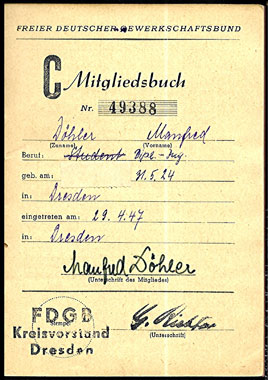 FREIER DEUTSCHER GEWERKSCHAFTSBUND
C Mitgliedsbuch
Nr. 49388
Döhler Manfred
(Zuname) (Vorname)
Beruf: Student Dipl.-Ing.
geb. am: 31.5.24
in: Dresden
eingetreten am: 29.4.47
in: Dresden
Manfred Döhler
(Unterschrift des Mitgliedes)
FDGB
Stempel
Kreisvorstand
Dresden
(Unterschrift)